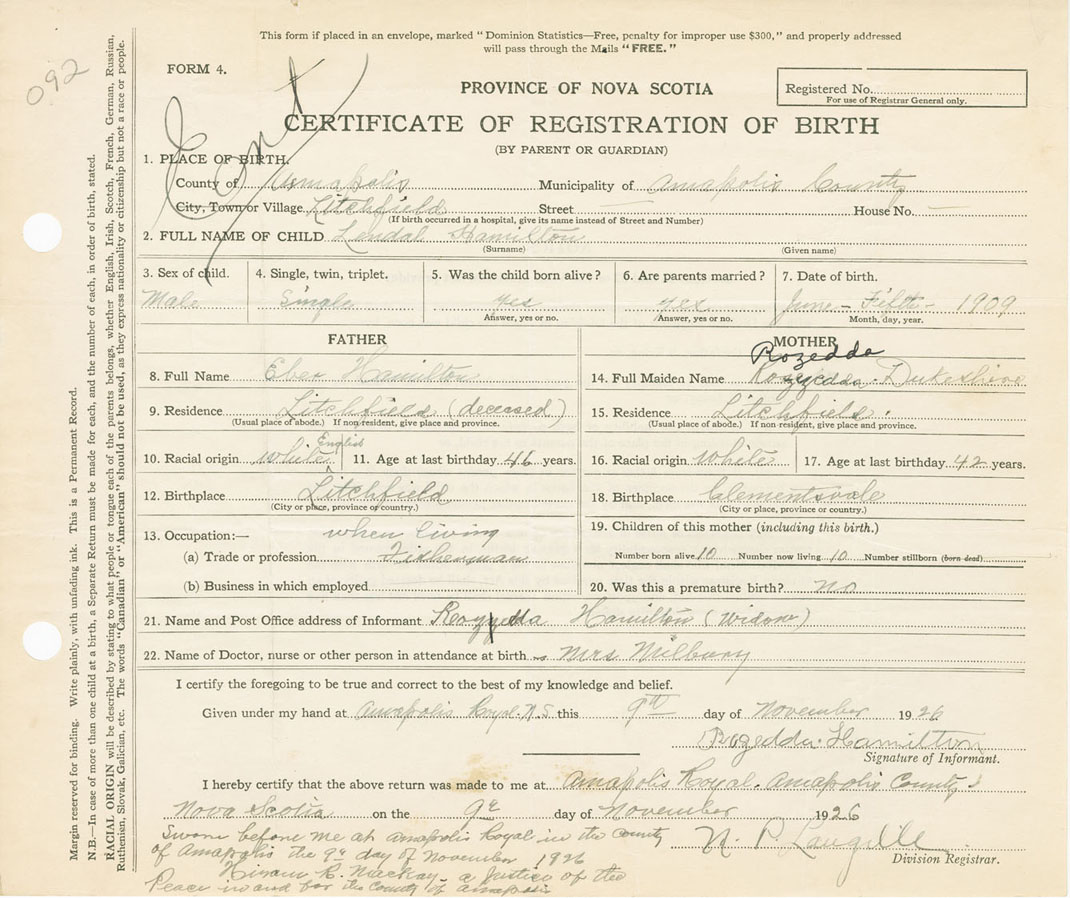 This form if placed in an envelope, marked "Dominion Statistics—Free, penalty for improper use $300," and properly addressed
will pass through the Mails "FREE."
092
FORM 4.
Cont
PROVINCE OF NOVA SCOTIA
Registered No.
For use of Registrar General only.
CERTIFICATE OF REGISTRATION OF BIRTH
(BY PARENT OR GUARDIAN)
1. PLACE OF BIRTH.
County of Annapolis Municipality of Annapolis County
City, Town or Village Litchfield Street — House No. —
(If birth occurred in a hospital, give its name instead of Street and Number)
2. FULL NAME OF CHILD Lendal Hamilton
(Surname) (Given name)
3. Sex of child. 4. Single, twin, triplet. 5. Was the child born alive? 6. Are parents married? 7. Date of birth.
Male Single yes yes June - Fifth - 1909
Answer, yes or no. Answer, yes or no. Month, day, year.
FATHER MOTHER
Rozedda
8. Full Name Eber Hamilton 14. Full Maiden Name Dukeshire
9. Residence Litchfield (deceased) 15. Residence Litchfield.
(Usual place of abode.) If non-resident, give place and province. (Usual place of abode.) If non-resident, give place and province.
English
10. Racial origin white 11. Age at last birthday 46 years. 16. Racial origin white 17. Age at last birthday 42 years.
12. Birthplace Litchfield 18. Birthplace Clementsvale
(City or place, province or country.) (City or place, province or country.)
13. Occupation:— when living 19. Children of this mother (including this birth.)
(a) Trade or profession Fisherman Number born alive 10 Number now living 10 Number stillborn (born dead)
(b) Business in which employed 20. Was this a premature birth? no
21. Name and Post Office address of Informant Rozedda Hamilton (Widow)
22. Name of Doctor, nurse or other person in attendance at birth - Mrs Milbury
I certify the foregoing to be true and correct to the best of my knowledge and belief.
Given under my hand at Anapolis Royal. N.S this 9th day of November 1926
Rozedda Hamilton
Signature of Informant.
I hereby certify that the above return was made to me at Anapolis Royal. Anapolis County
Nova Scotia on the 9th day of November 1926
Sworn before me at Anapolis Royal in the County
of Anapolis the 9th day of November 1926
N. P. Langille
Division Registrar.
Hiram R. Mackay a Justice of the
Peace in and for the County of Anapolis
Margin reserved for binding. Write plainly, with unfading ink. This is a Permanent Record.
N.B.—In case of more than one child at a birth, a Separate Return must be made for each, and the number of each, in order of birth, stated.
RACIAL ORIGIN will be described by stating to what people or tongue each of the parents belongs, whether English, Irish, Scotch, French, German, Russian,
Ruthenian, Slovak, Galician, etc. The words "Canadian" or "American" should not be used, as they express nationality or citizenship but not a race or people.